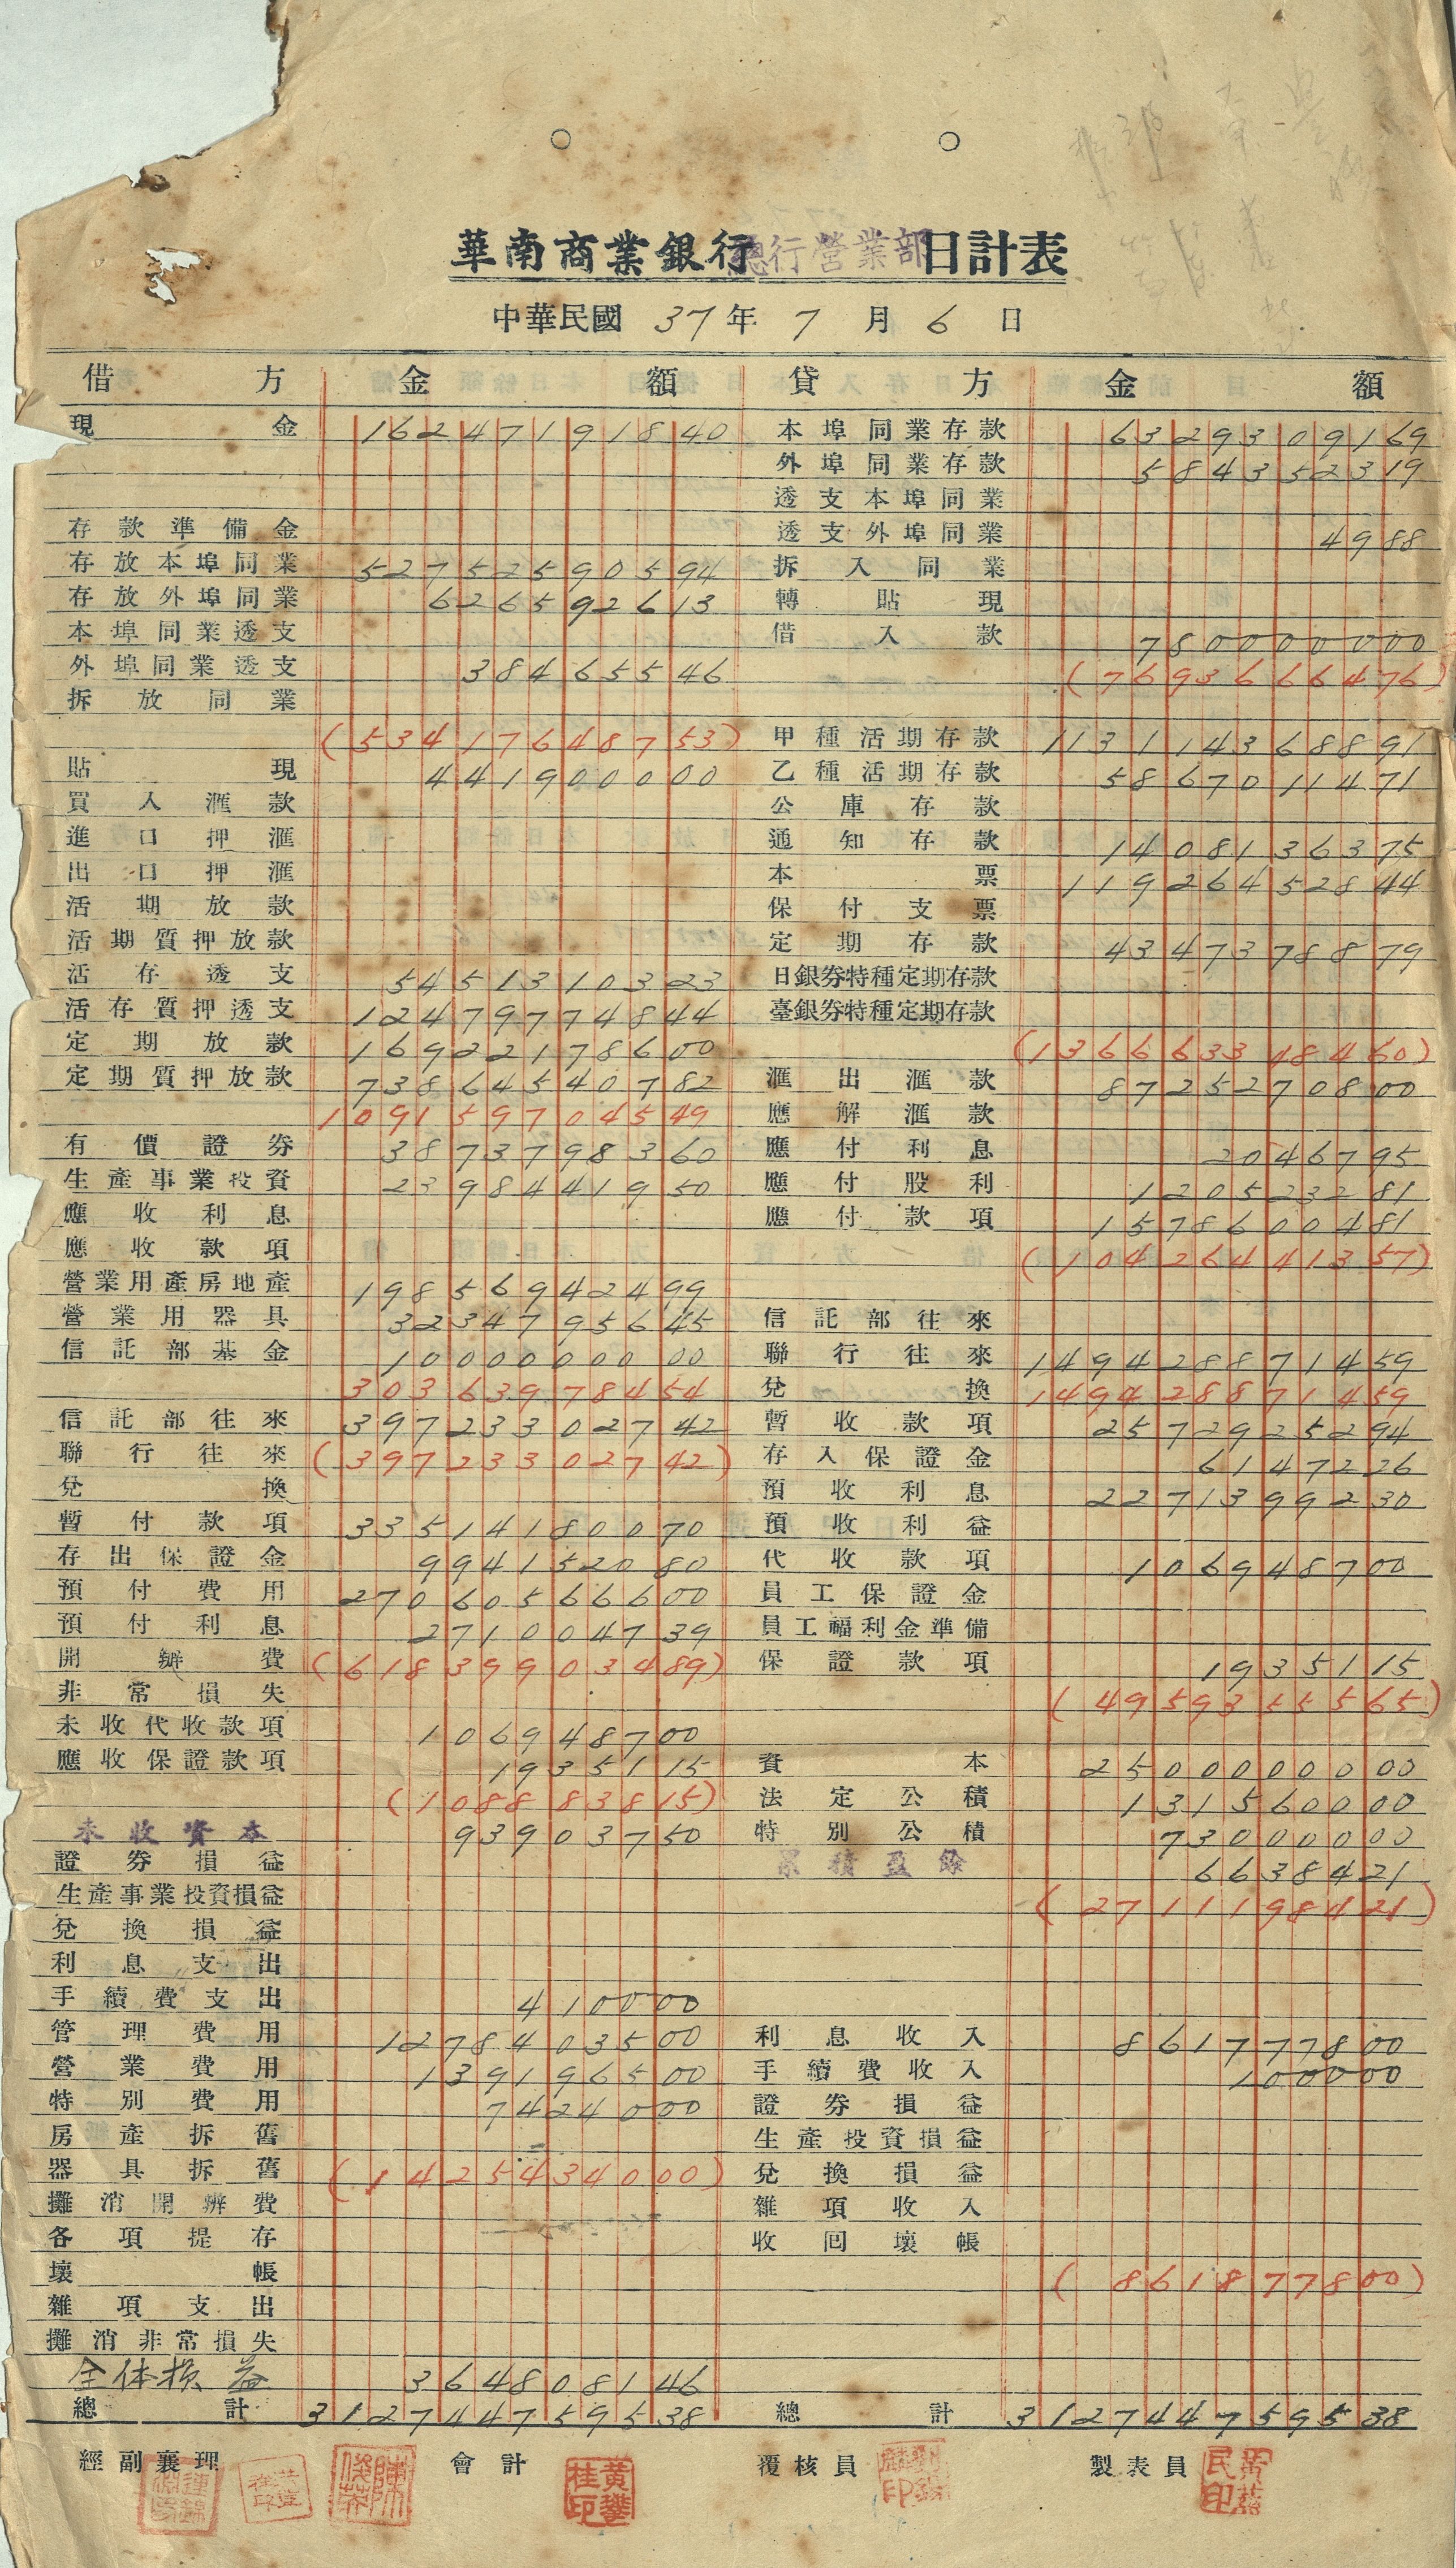 華南商業銀行總行營業部日計表
中華民國 37 年 7 月 6 日
借方 金額 貸方 金額
現金 16247191840 本埠同業存款 6329309169
外埠同業存款 584352319
透支本埠同業
存款準備金 透支外埠同業 4988
存放本埠同業 52752590594 拆入同業
存放外埠同業 626592613 轉貼現
本埠同業透支 借入款 780000000
外埠同業透支 38465546 (7693666476)
拆放同業
(53417648753) 甲種活期存款 113114368891
貼現 441900000 乙種活期存款 5867011471
買入滙款 公庫存款
進口押滙 通知存款 1408136375
出口押滙 本票 11926452844
活期放款 保付支票
活期質押放款 定期存款 4347378879
活存透支 5451310323 日銀券特種定期存款
活存質押透支 12479774844 臺銀券特種定期存款
定期放款 16922178600 (136663348460)
定期質押放款 73864540782 滙出滙款 8725270800
109159704549 應解滙款
有價證券 3873798360 應付利息 2046795
生產事業投資 2398441950 應付股利 120523281
應收利息 應付款項 1578600481
應收款項 (10426441357)
營業用產房地產 19856942499
營業用器具 3234795645 信託部往來
信託部基金 1000000000 聯行往來 149428871459
30363978454 兌換 149428871459
信託部往來 39723302742 暫收款項 2572925294
聯行往來 (39723302742) 存入保證金 6147226
兌換 預收利息 2271399230
暫付款項 33514180070 預收利益
存出保證金 994152080 代收款項 106948700
預付費用 27060566600 員工保證金
預付利息 271004739 員工福利金準備
開辦費 (61839903489) 保證款項 1935115
非常損失 (4959355565)
未收代收款項 106948700
應收保證款項 1935115 資本 2500000000
(108883815) 法定公積 131560000
未收資本 93903750 特別公積 73000000
證券損益 累積盈餘 6638421
生產事業投資損益 (2711198421)
兌換損益
利息支出
手續費支出 410000
管理費用 1278403500 利息收入 861777800
營業費用 139196500 手續費收入 100000
特別費用 7424000 證券損益
房產拆舊 生產投資損益
器具拆舊 (1425434000) 兌換損益
攤消開辦費 雜項收入
各項提存 收囘壞帳
壞帳 (861877800)
雜項支出
攤消非常損失
全体損益 364808146
總計 312744759538 總計 312744759538
經副襄理 會計 黃攀桂印 覆核員 製表員